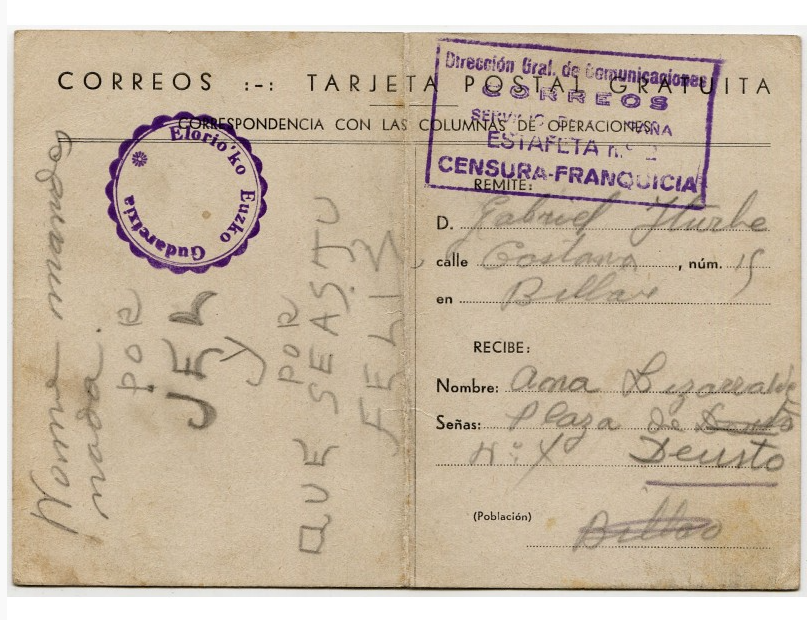 CORREOS :-: TARJETA POSTAL GRATUITA
CORRESPONDENCIA CON LAS COLUMNAS DE OPERACIONES
Dirección Gral. de Comunicaciones
CORREOS
SERVICIO DE CAMPAÑA
ESTAFETA N.º 2
CENSURA-FRANQUICIA
Elorio'ko Euzko Gudaretxia
POR
JEL
Y
POR
QUE SEAS TU
FELIZ
REMITE:
D. Gabriel Iturbe
calle , núm. 15
en Bilbao
RECIBE:
Nombre: Ana Lizarralde
Señas: Plaza de
Nº Deusto
(Población) Bilbao